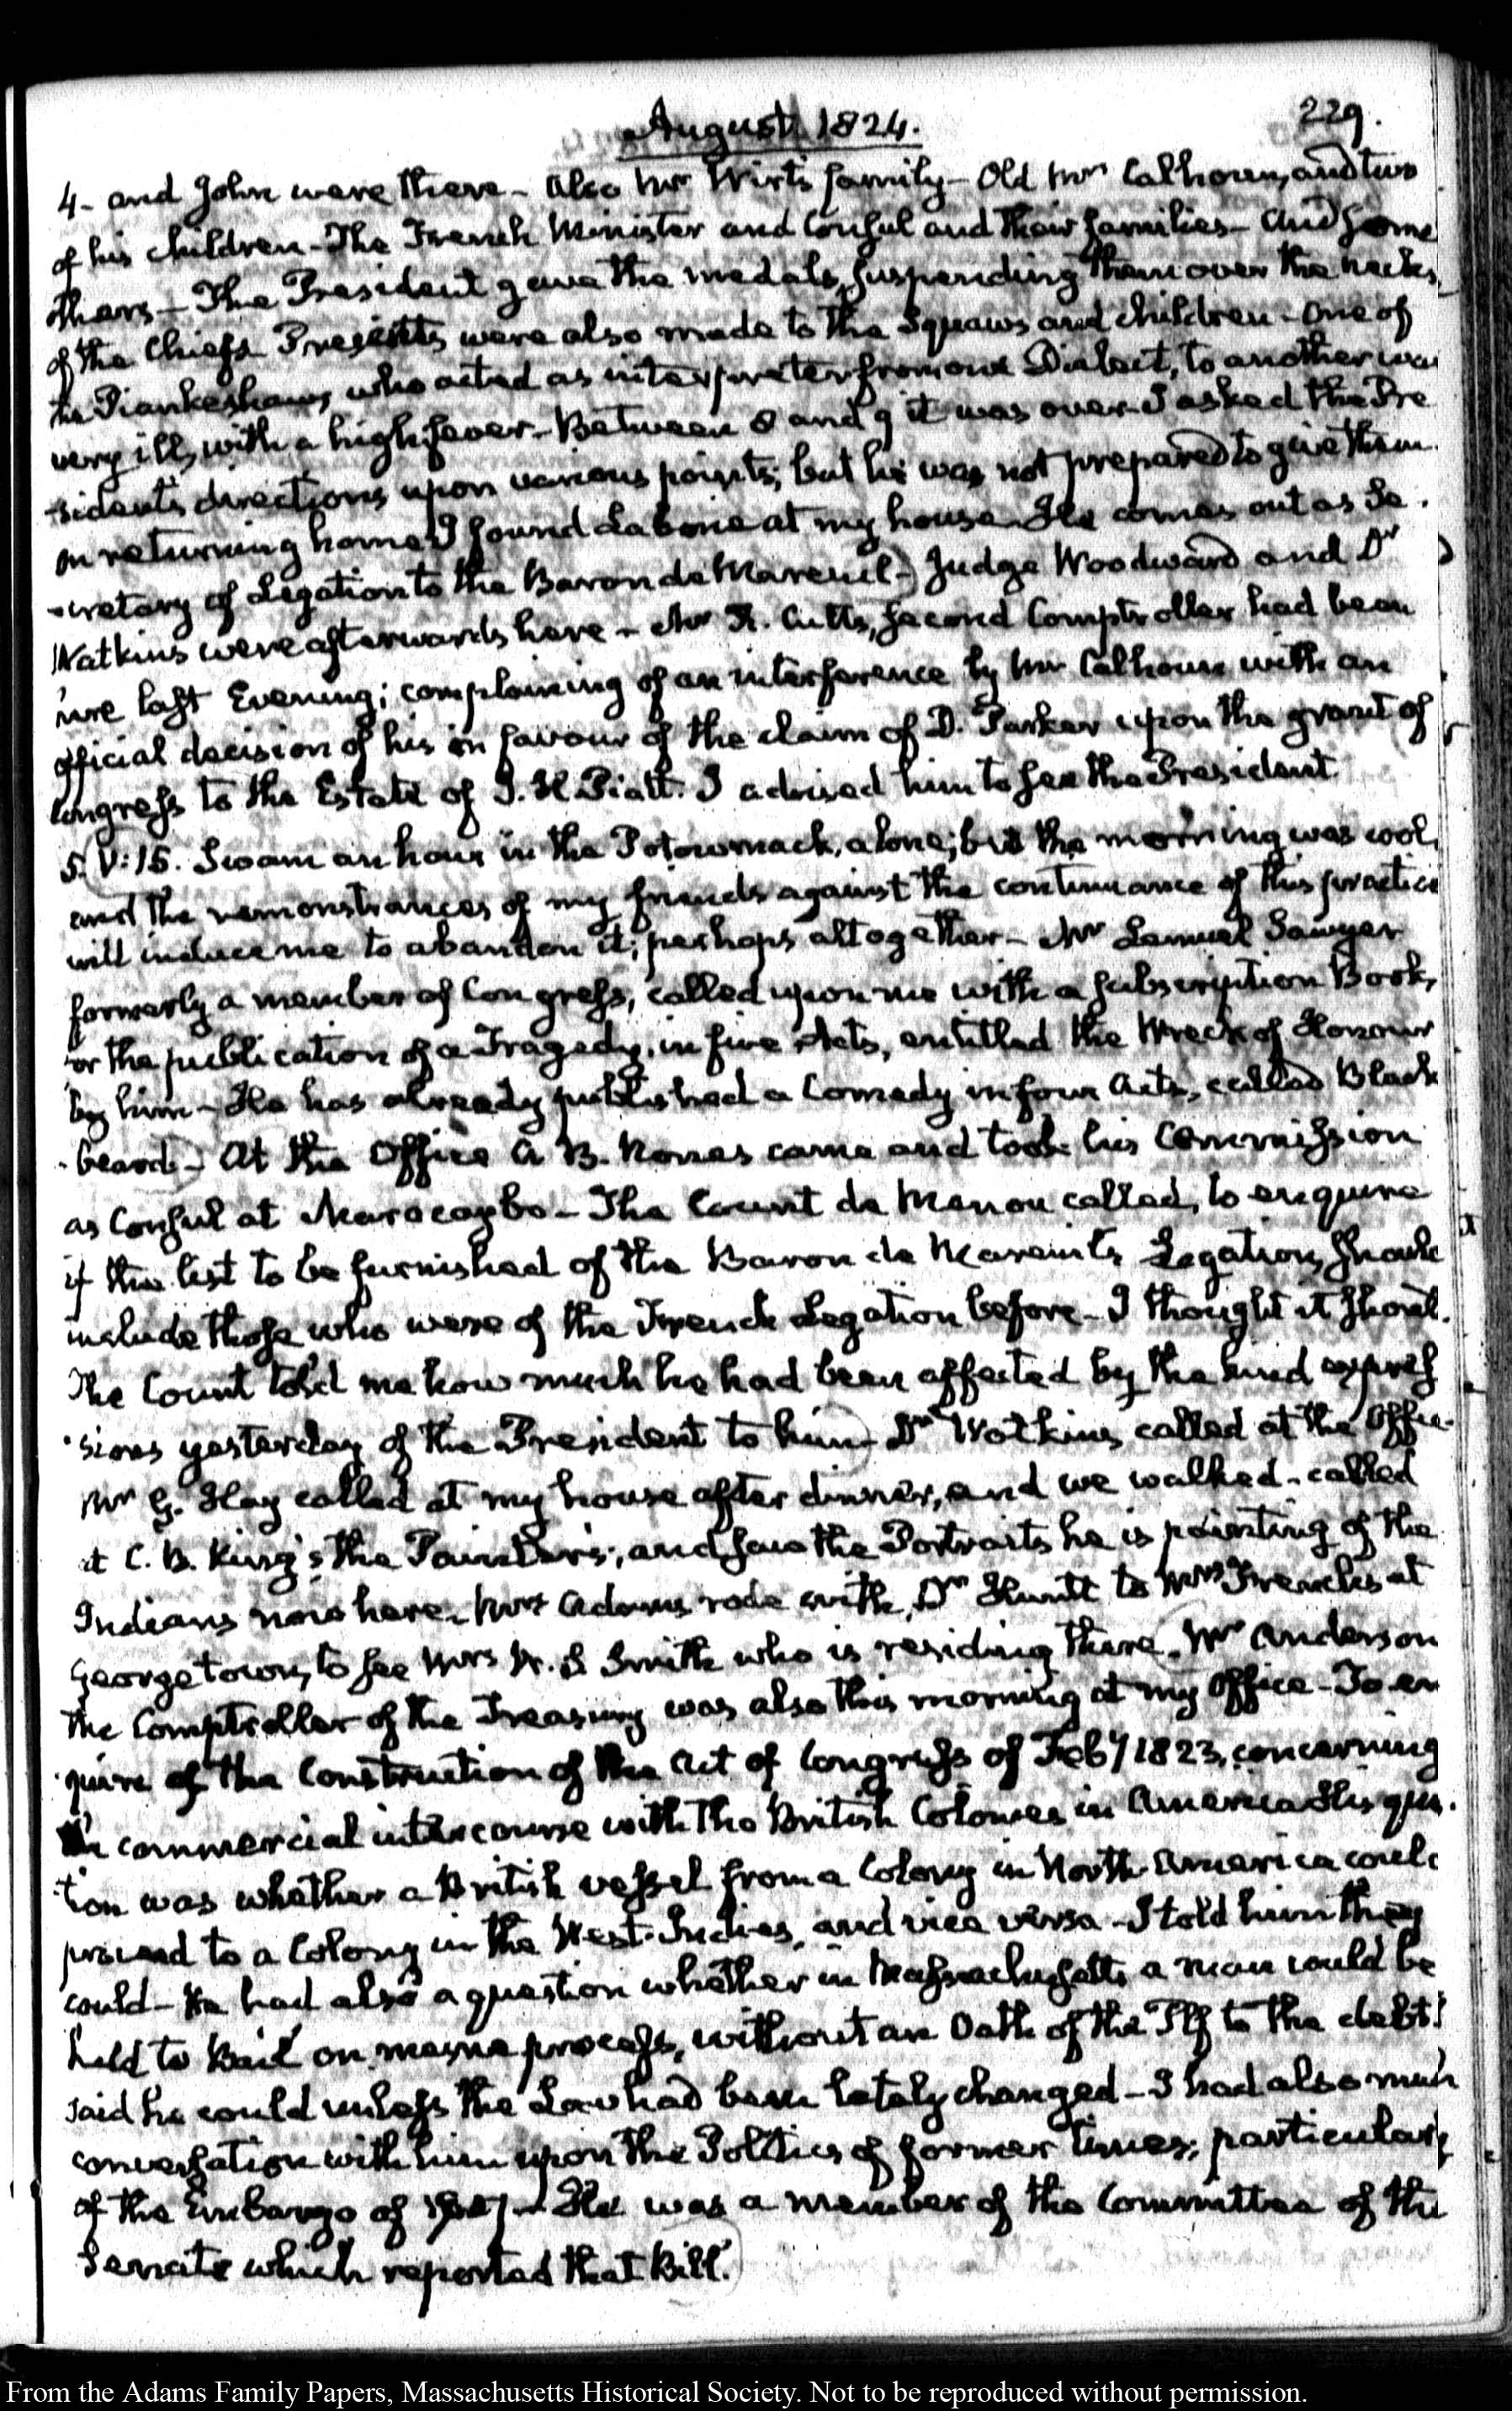 August 1824.
229.
4- and John were there - Also Mr Wirt's family - Old Mrs Calhoun, and two
of his children - The French Minister and Consul and their families - And some
others - The President gave the medals, suspending them over the necks
of the Chiefs Presents were also made to the Squaws and children - One of
the Piankeshaws, who acted as interpreter from one Dialect, to another was
very ill, with a high fever - Between 8 and 9 it was over - I asked the Pre
-sident's directions upon various points; but he was not prepared to give them.
On returning home I found Laborie at my house. He comes out as Se.
-cretary of Legation to the Baron de Mareuil - Judge Woodward and Dr
Watkins were afterwards here - Mr R. Cutts, second Comptroller had been
here last Evening; complaining of an interference by Mr Calhoun with an
official decision of his in favour of the claim of D. Parker upon the grant of
Congress to the Estate of J. H. Piatt. I advised him to see the President.
5. V:15. Swam an hour in the Potowmack, alone; but the morning was cool,
and the remonstrances of my friends against the continuance of this practice
will induce me to abandon it; perhaps altogether - Mr Lemuel Sawyer
formerly a member of Congress, called upon me with a subscription Book,
for the publication of a Tragedy, in five Acts, entitled the Wreck of Honour
by him - He has already published a Comedy in four Acts, called Black
-beard - At the Office A. B. Nones came and took his Commission
as Consul at Maracaybo - The Count de Menou called, to enquire
if the list to be furnished of the Baron de Mareuil's Legation, should
include those who were of the French Legation before - I thought it should.
The Count told me how much he had been affected by the kind expres
-sions yesterday of the President to him - Dr Watkins called at the Office.
Mr G. Hay called at my house after dinner, and we walked - called
at C. B. King's the Painter's; and saw the Portraits he is painting of the
Indians now here. Mrs Adams rode with Dr Huntt to Mrs French's at
Georgetown, to see Mrs W. S. Smith who is residing there. Mr Anderson
the Comptroller of the Treasury was also this morning at my Office - To en
-quire of the Construction of the Act of Congress of Feby 1823, concerning
the commercial intercourse with the British Colonies in America His ques.
-tion was whether a British vessel from a Colony in North America could
proceed to a Colony in the West-Indies, and vice versa - I told him they
could - He had also a question whether in Massachusetts a man could be
held to Bail on mesne process, without an Oath of the Plf to the debt. I
said he could unless the Law had been lately changed - I had also much
conversation with him upon the Politics of former times; particularly
of the Embargo of 1807 - He was a member of the Committee of the
Senate which reported that Bill.
From the Adams Family Papers, Massachusetts Historical Society. Not to be reproduced without permission.